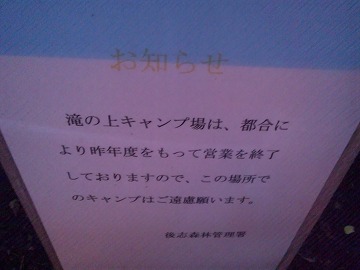 お知らせ
滝の上キャンプ場は、都合に
より昨年度をもって営業を終了
しておりますので、この場所で
のキャンプはご遠慮願います。
後志森林管理署